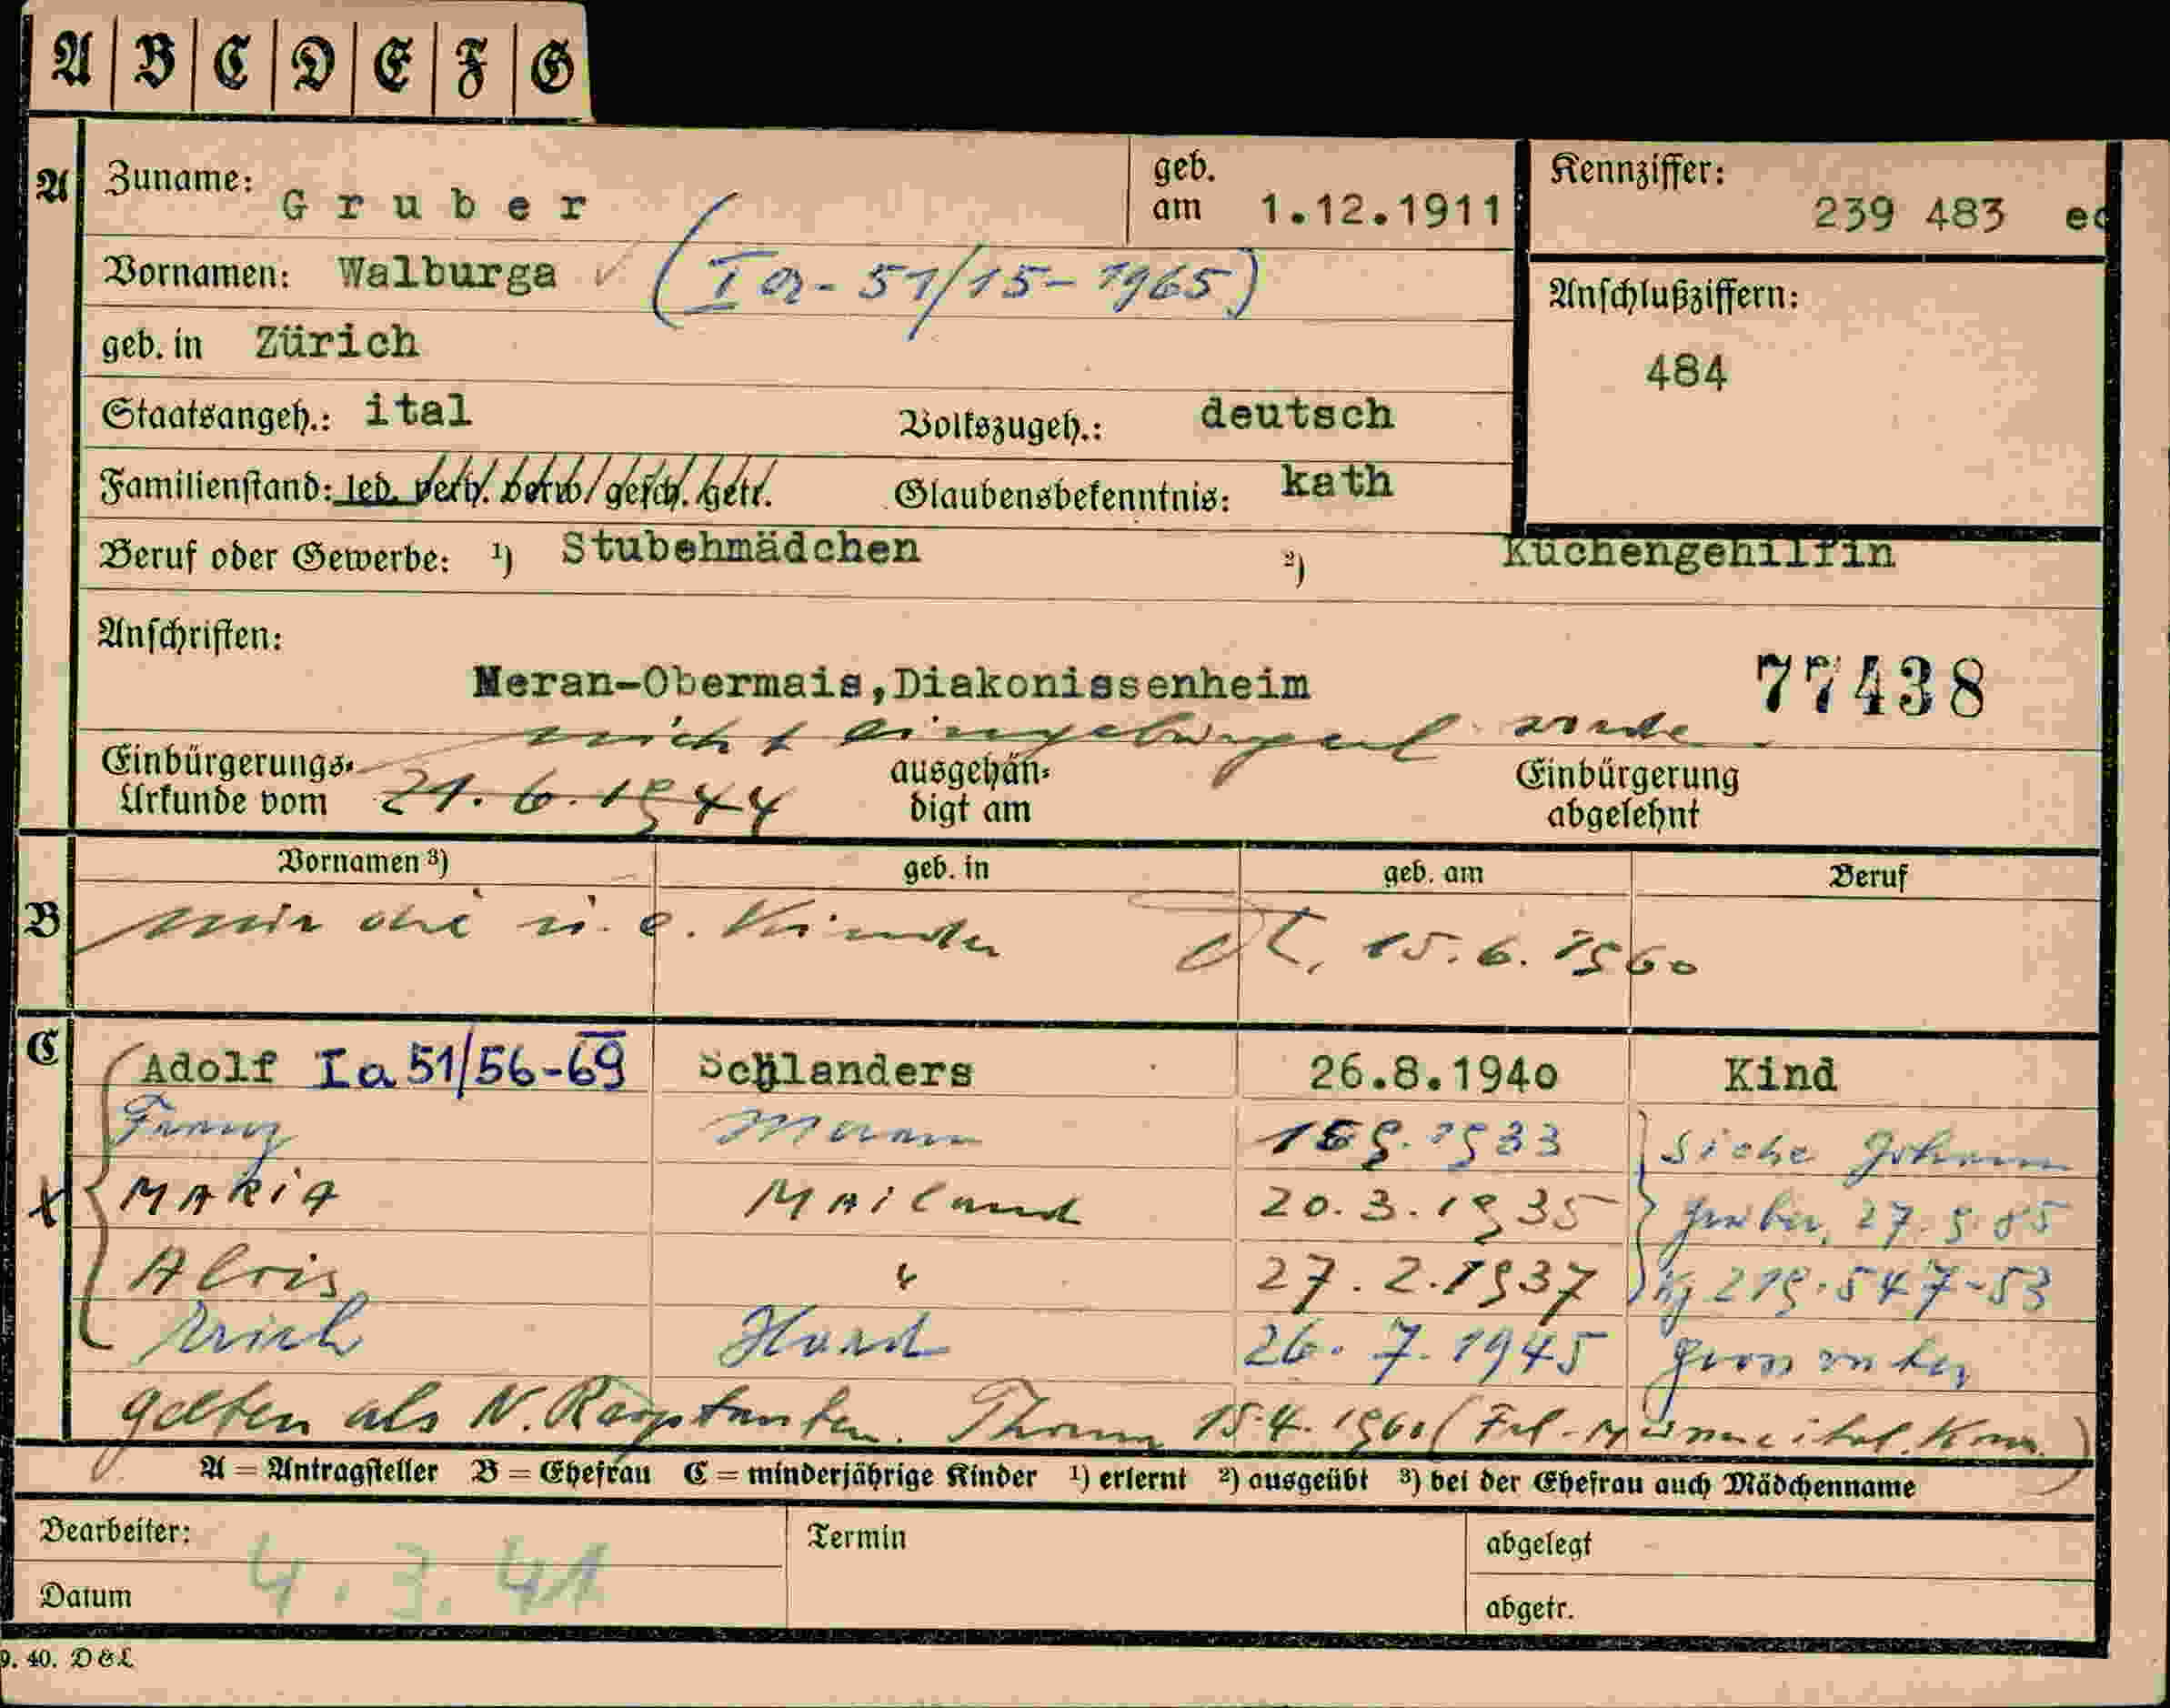 A B C D E F G
A Zuname: Gruber geb. am 1.12.1911 Kennziffer: 239 483
Vornamen: Walburga (Ia-51/15-1965) Anschlußziffern:
geb. in Zürich 484
Staatsangeh.: ital Volkszugeh.: deutsch
Familienstand: led. verh. verw. gesch. getr. Glaubensbekenntnis: kath
Beruf oder Gewerbe: 1) Stubehmädchen 2) Küchengehilfin
Anschriften:
Meran-Obermais, Diakonissenheim 77438
nicht eingebürgert worden
Einbürgerungs-Urkunde vom 21.6.1944 ausgehändigt am Einbürgerung abgelehnt
Vornamen 3) geb. in geb. am Beruf
B u. e. Kinder 15.6.1960
C Adolf Ia 51/56-69 Schlanders 26.8.1940 Kind
Franz Meran 1933 siehe Johann
Maria Mailand 20.3.1935 Gruber, 27.9.85
Alois " 27.2.1937 Kz 219.547-53
Erich Hard 26.7.1945 Grossvater
gelten als N. Thurn 15.4.1960 ital.
A = Antragsteller B = Ehefrau C = minderjährige Kinder 1) erlernt 2) ausgeübt 3) bei der Ehefrau auch Mädchenname
Bearbeiter: Termin abgelegt
4.3.41
Datum abgetr.
9. 40. D&L